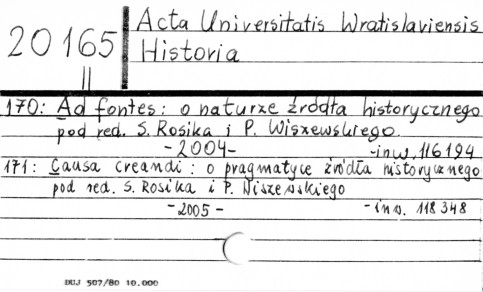 20165
II
Acta Universitatis Wratislaviensis
Historia
170: Ad fontes: o naturze źródła historycznego
pod red. S. Rosika i P. Wiszewskiego.
-2004- -inw. 116194
171: Causa creandi: o pragmatyce źródła historycznego
pod red. S. Rosika i P. Wiszewskiego
-2005- -inw. 118348
DUJ 507/80 10.000